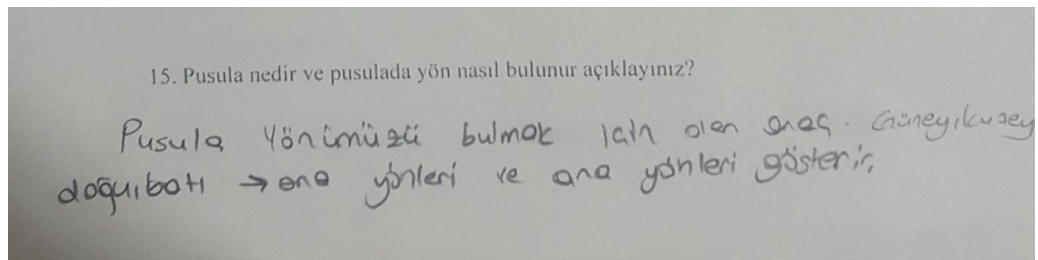 15. Pusula nedir ve pusulada yön nasıl bulunur açıklayınız?
Pusula yönümüzü bulmak için olan araç. Güney, kuzey
doğu, batı → ana yönleri ve ana yönleri gösterir.